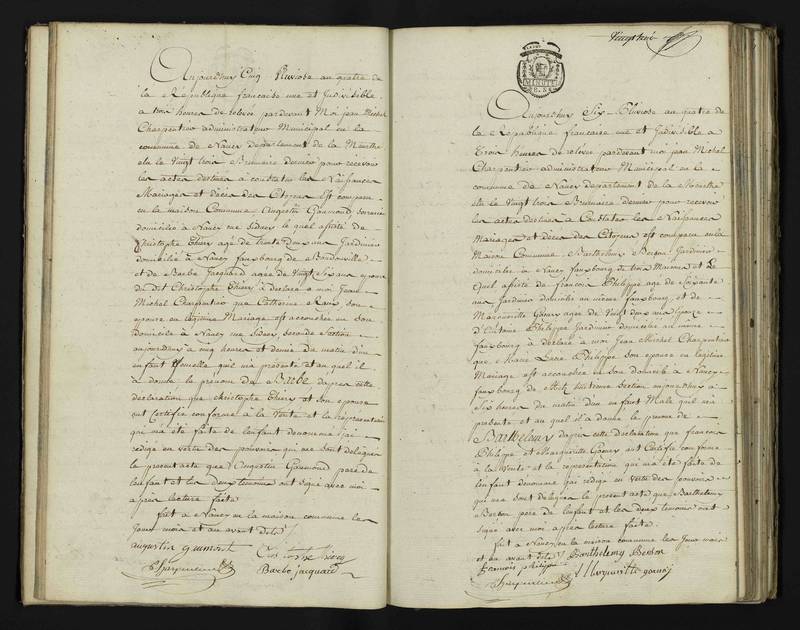 Aujourdhuy Cinq Pluviose an quatre de
la République francaise une et Indivisible
a trois heures de relevée pardevant Moi jean Michel
Charpentier administrateur Municipal en la
commune de Nancy département de la Meurthe
élu le Vingt trois Brumaire dernier pour recevoir
les actes destinés à constater les Naissances
Mariages et décès des Citoyens Est comparu
en la maison Commune Augustin
domicilié à Nancy rue lequel assisté de
Christophe Thiery agé de trente deux ans Jardinier
domicilié à Nancy fauxbourg de
et de Barbe Jacquard agée de Vingt Six ans epouse
du dit Christophe Thiery a déclaré a moi Jean
Michel Charpentier que Catherine son
épouse en légitime Mariage est accouchée en son
domicile à Nancy rue seconde Section
aujourdhuy à cinq heures et demie du matin d'un
enfant femelle quil ma présenté et au quel il
a donné le prenom de Barbe dapres cette
déclaration que Christophe Thiery et son epouse
ont Certifié conforme à la Vérité et la représentation
qui m'a été faite de lenfant denommé jai
redigé en vertu des pouvoirs qui me sont delegués
le present acte que Augustin pere de
lenfant et les deux temoins ont signé avec moi
après lecture faite
fait a Nancy en la maison commune les
jour mois et an avant dits
augustin
Barbe jacquard
Charpentier
Aujourdhuy Six Pluviose an quatre de
la République francaise une et Indivisible a
Trois heures de relevée pardevant moi jean Michel
Charpentier administrateur Municipal en la
commune de Nancy département de la Meurthe
élu le Vingt trois Brumaire dernier pour recevoir
les actes destinés à Constater les Naissances
Mariages et décès des Citoyens est comparu en la
Maison Commune Barthelemy Berson Jardinier
domicilié à Nancy fauxbourg de trois Maisons et Le
quel assisté de françois Philippe agé de Soixante
ans Jardinier domicilié au même fauxbourg et de
Marguerite agée de Vingt deux ans épouse
d'Antoine Philippe Jardinier domicilié au même
fauxbourg a déclaré a moi Jean Michel Charpentier
que Marie Lucie Philippe son epouse en légitime
Mariage est accouchée en son domicile à Nancy
fauxbourg de Metz huitieme Section aujourdhuy à
Six heures du matin d'un enfant Male quil m'a
présenté et au quel il a donné le prenom de
Barthelemy dapres cette déclaration que françois
Philippe et Marguerite ont Certifié conforme
à la Vérité et la representation qui m'a été faite de
lenfant denommé jai redigé en vertu des pouvoirs
qui me sont delegués le present acte que Barthelemy
Berson pere de lenfant et les deux temoins ont
signé avec moi après lecture faite.
fait a Nancy en la maison commune les jour mois
et an avant dits Barthelemy Berson
francois philippe Marguerite
Charpentier